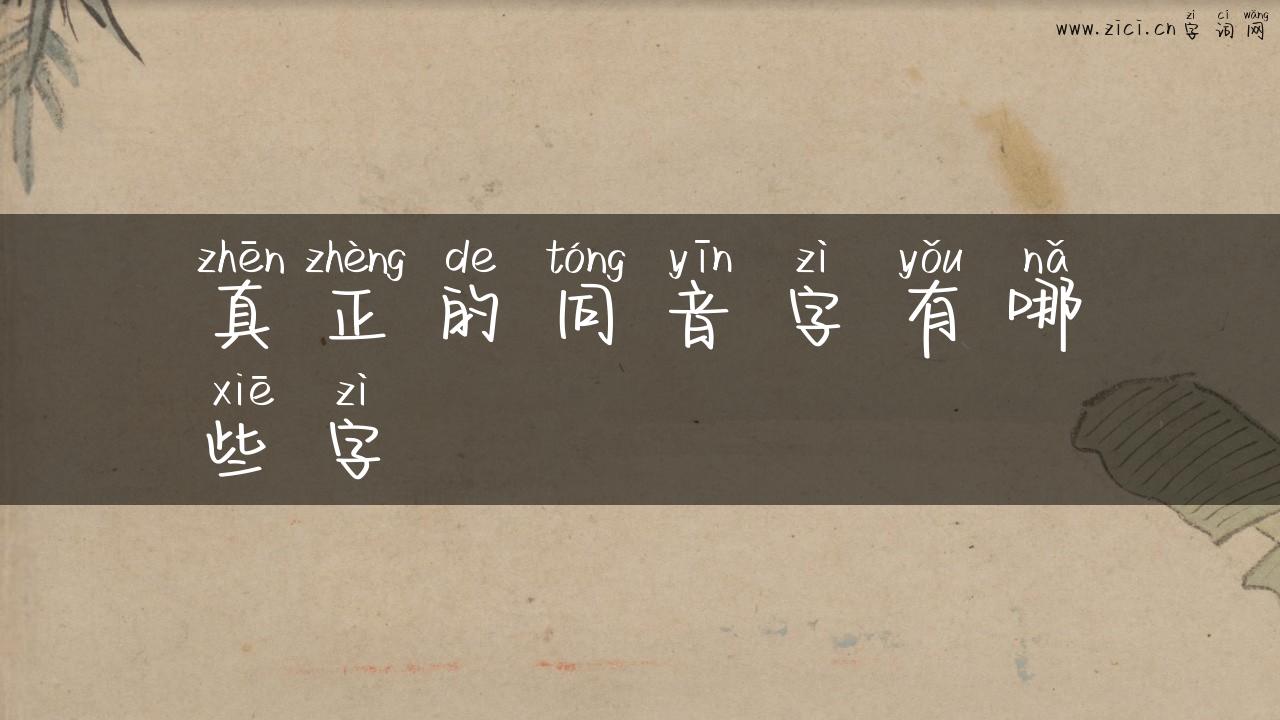 zì cí wǎng
www.zici.cn 字词网
zhēn zhèng de tóng yīn zì yǒu nǎ
真正的同音字有哪
xiē zì
些字